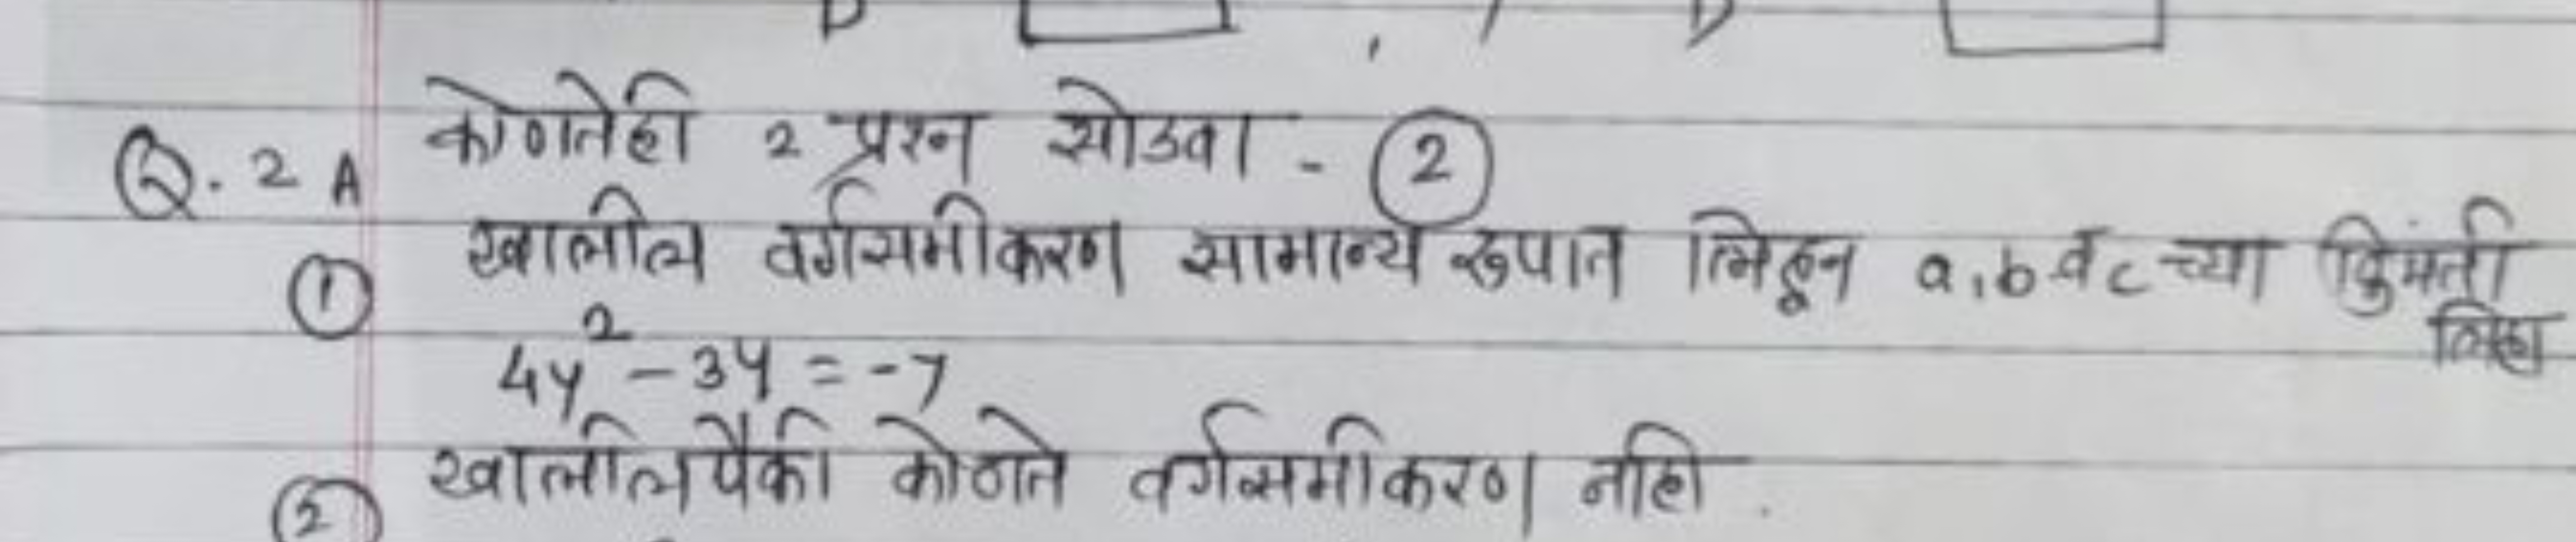 Q. 2 A कोणतेही 2 प्रश्न सोडवा - ②
① खालील वर्गसमीकरण सामान्य रुपात लिहून a, b व c च्या किंमती
लिहा
4y² - 3y = -7
② खालीलपैकी कोणते वर्गसमीकरण नाही.